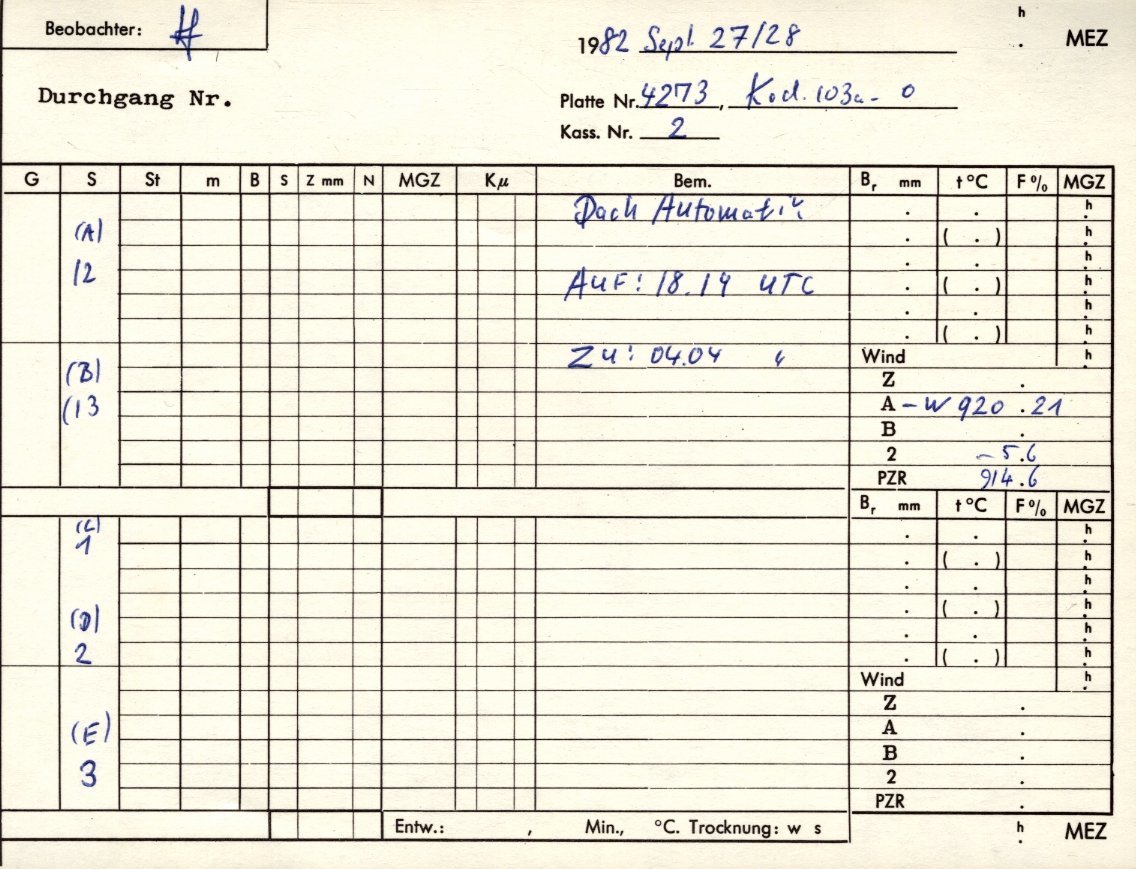 Beobachter: H
1982 Sept. 27/28
h . MEZ
Durchgang Nr.
Platte Nr. 4273, Kod. 103a-0
Kass. Nr. 2
G S St m B S Z mm N MGZ Kμ Bem. Br mm t °C F % MGZ
Dach Automatik . . h
(A) . ( . ) h
. . h
12 Auf: 18.14 UTC . ( . ) h
. . h
. ( . ) h
Zu: 04.04 " Wind h
(B) Z .
(13 A – W 920 .21
B .
2 – 5.6
PZR 914.6
Br mm t °C F % MGZ
(C) . . h
1 . ( . ) h
. . h
(D) . ( . ) h
. . h
2 . ( . ) h
Wind h
Z .
(E) A .
B .
3 2 .
PZR .
Entw.: , Min., °C. Trocknung: w s h . MEZ